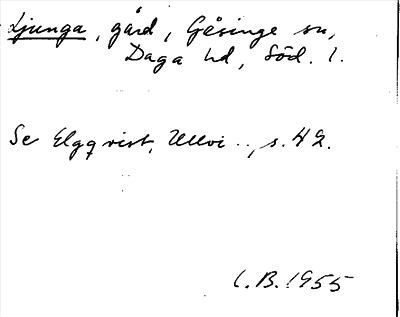 Ljunga, gård, Gåsinge sn,
Daga hd, Söd. l.
Se Elgqvist, Ullvi .., s. 42.
C.B. 1955